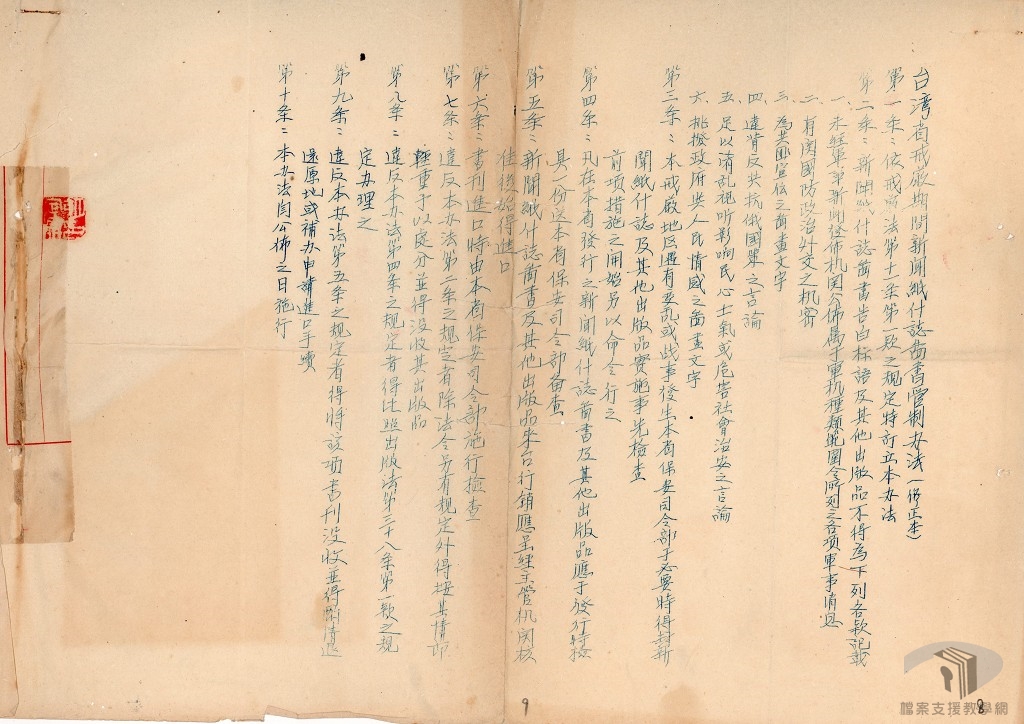 台湾省戒严期間新聞紙什誌啚書管制办法(修正本)
第一条：依戒严法第十一条第一款之規定特訂立本办法
第二条：新聞紙什誌啚書告白标語及其他出版品不得為下列各款記載
一、未经軍事新聞發佈机関公佈属于軍机種類範圍令所列之各項軍事消息
二、有関國防政治外交之机密
三、為共匪宣传之啚畫文字
四、違背反共抗俄國策之言論
五、足以淆乱視听影响民心士氣或危害社會治安之言論
六、挑撥政府与人民情感之啚畫文字
第三条：本戒严地区遇有变乱或战事發生本省保安司令部于必要時得对新
聞紙什誌及其他出版品實施事先檢查
前項措施之開始另以命令行之
第四条：凡在本省發行之新聞紙什誌啚書及其他出版品應于發行時檢
具一份送本省保安司令部備查
第五条：新聞紙什誌啚書及其他出版品來台行銷應呈經主管机関核
准後始得進口
第六条：書刊進口時由本省保安司令部施行檢查
第七条：違反本办法第二条之規定者除法令另有規定外得按其情節
輕重予以處分並得没收其出版品
第八条：違反本办法第四条之規定者得比照出版法第三十八条第一款之規
定办理之
第九条：違反本办法第五条之規定者得將該項書刊没收並得酌情退
還原地或補办申請進口手續
第十条：本办法自公佈之日施行
9
8
檔案支援教學網